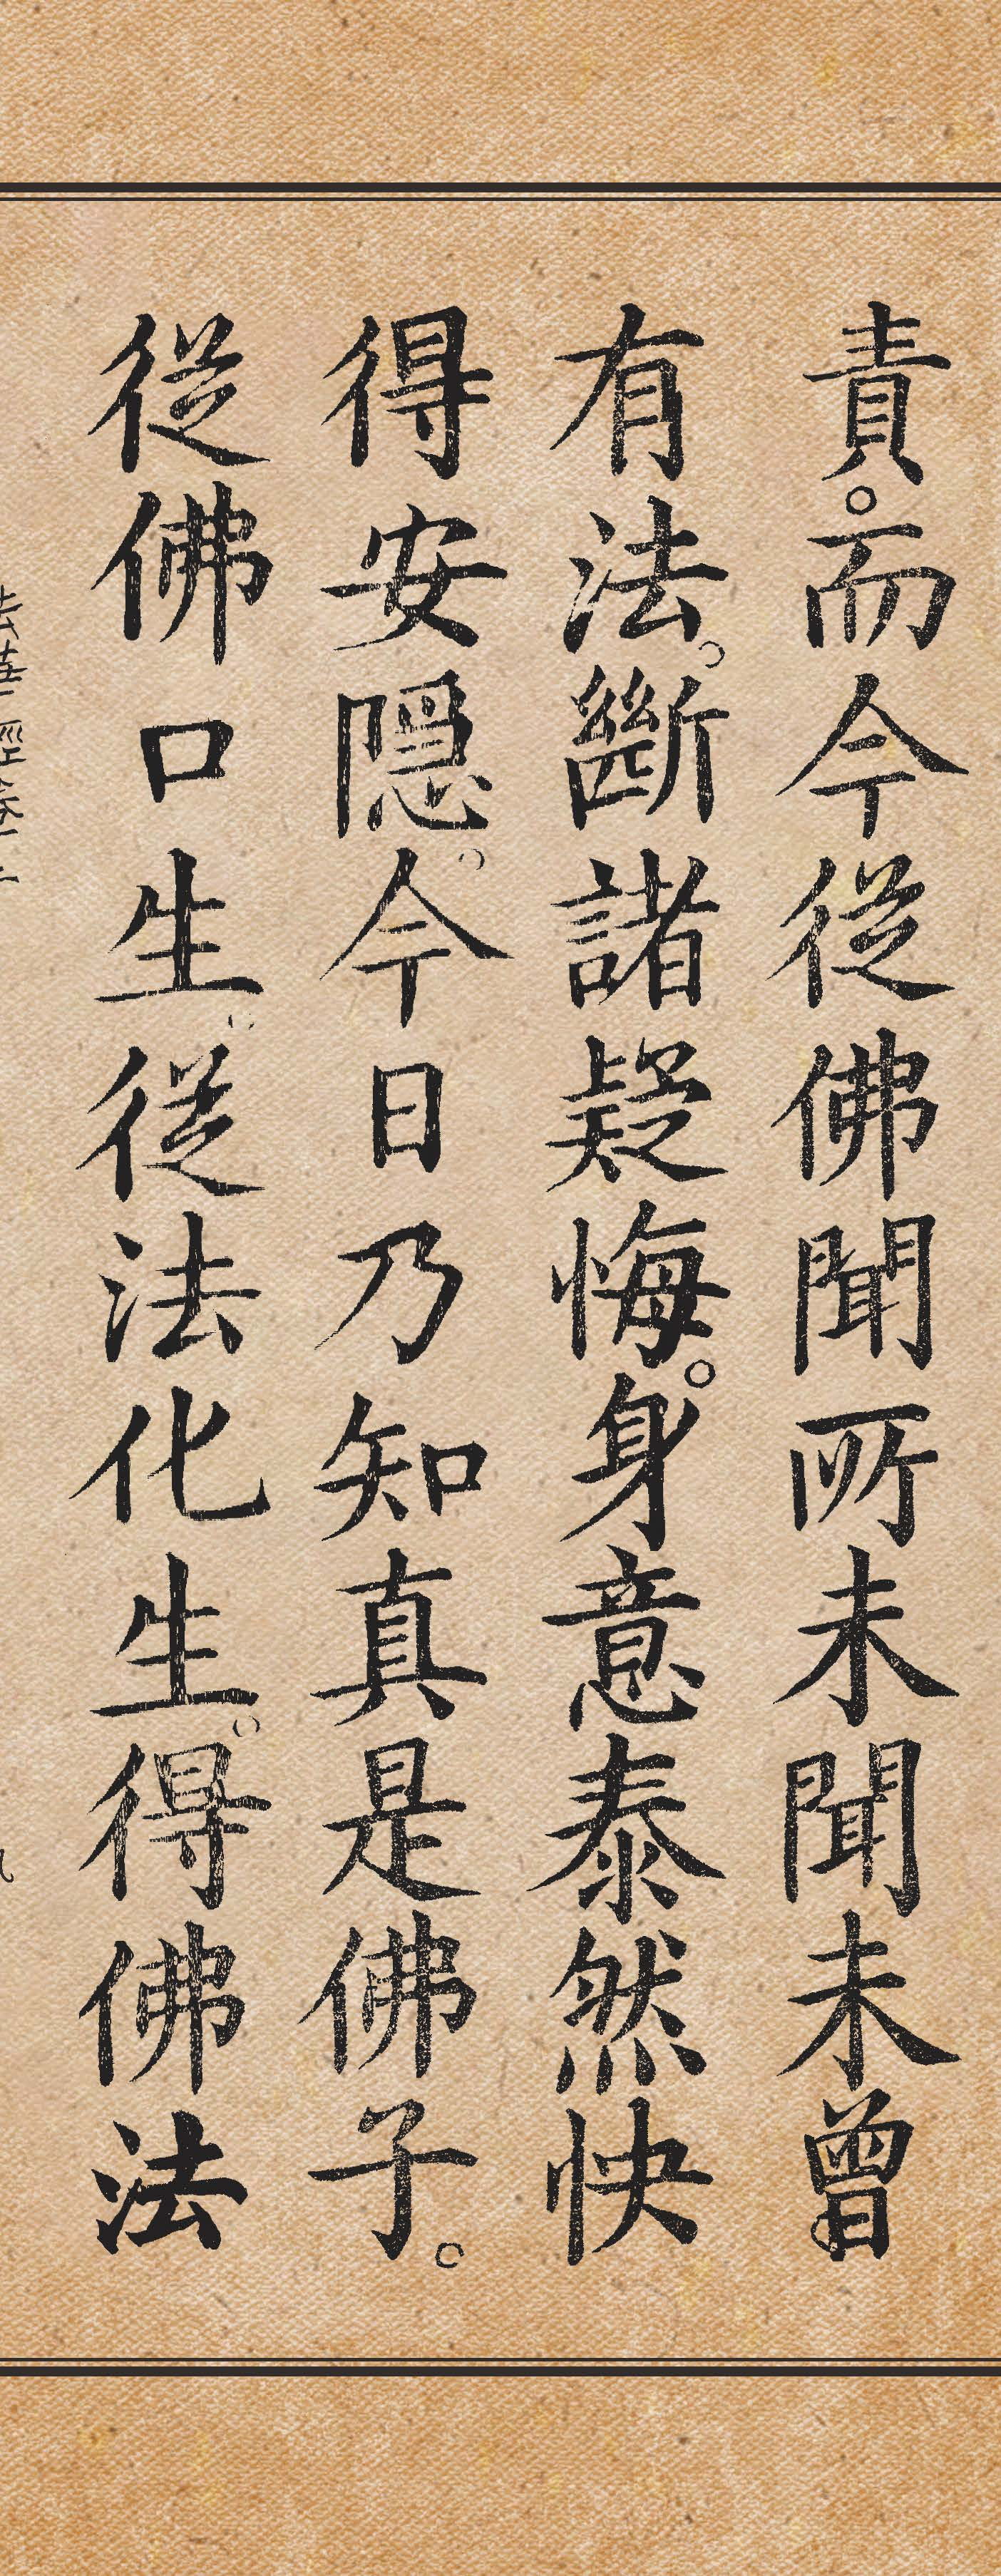 責。而今從佛聞所未聞未曾
有法。斷諸疑悔。身意泰然快
得安隱。今日乃知真是佛子。
從佛口生。從法化生。得佛法